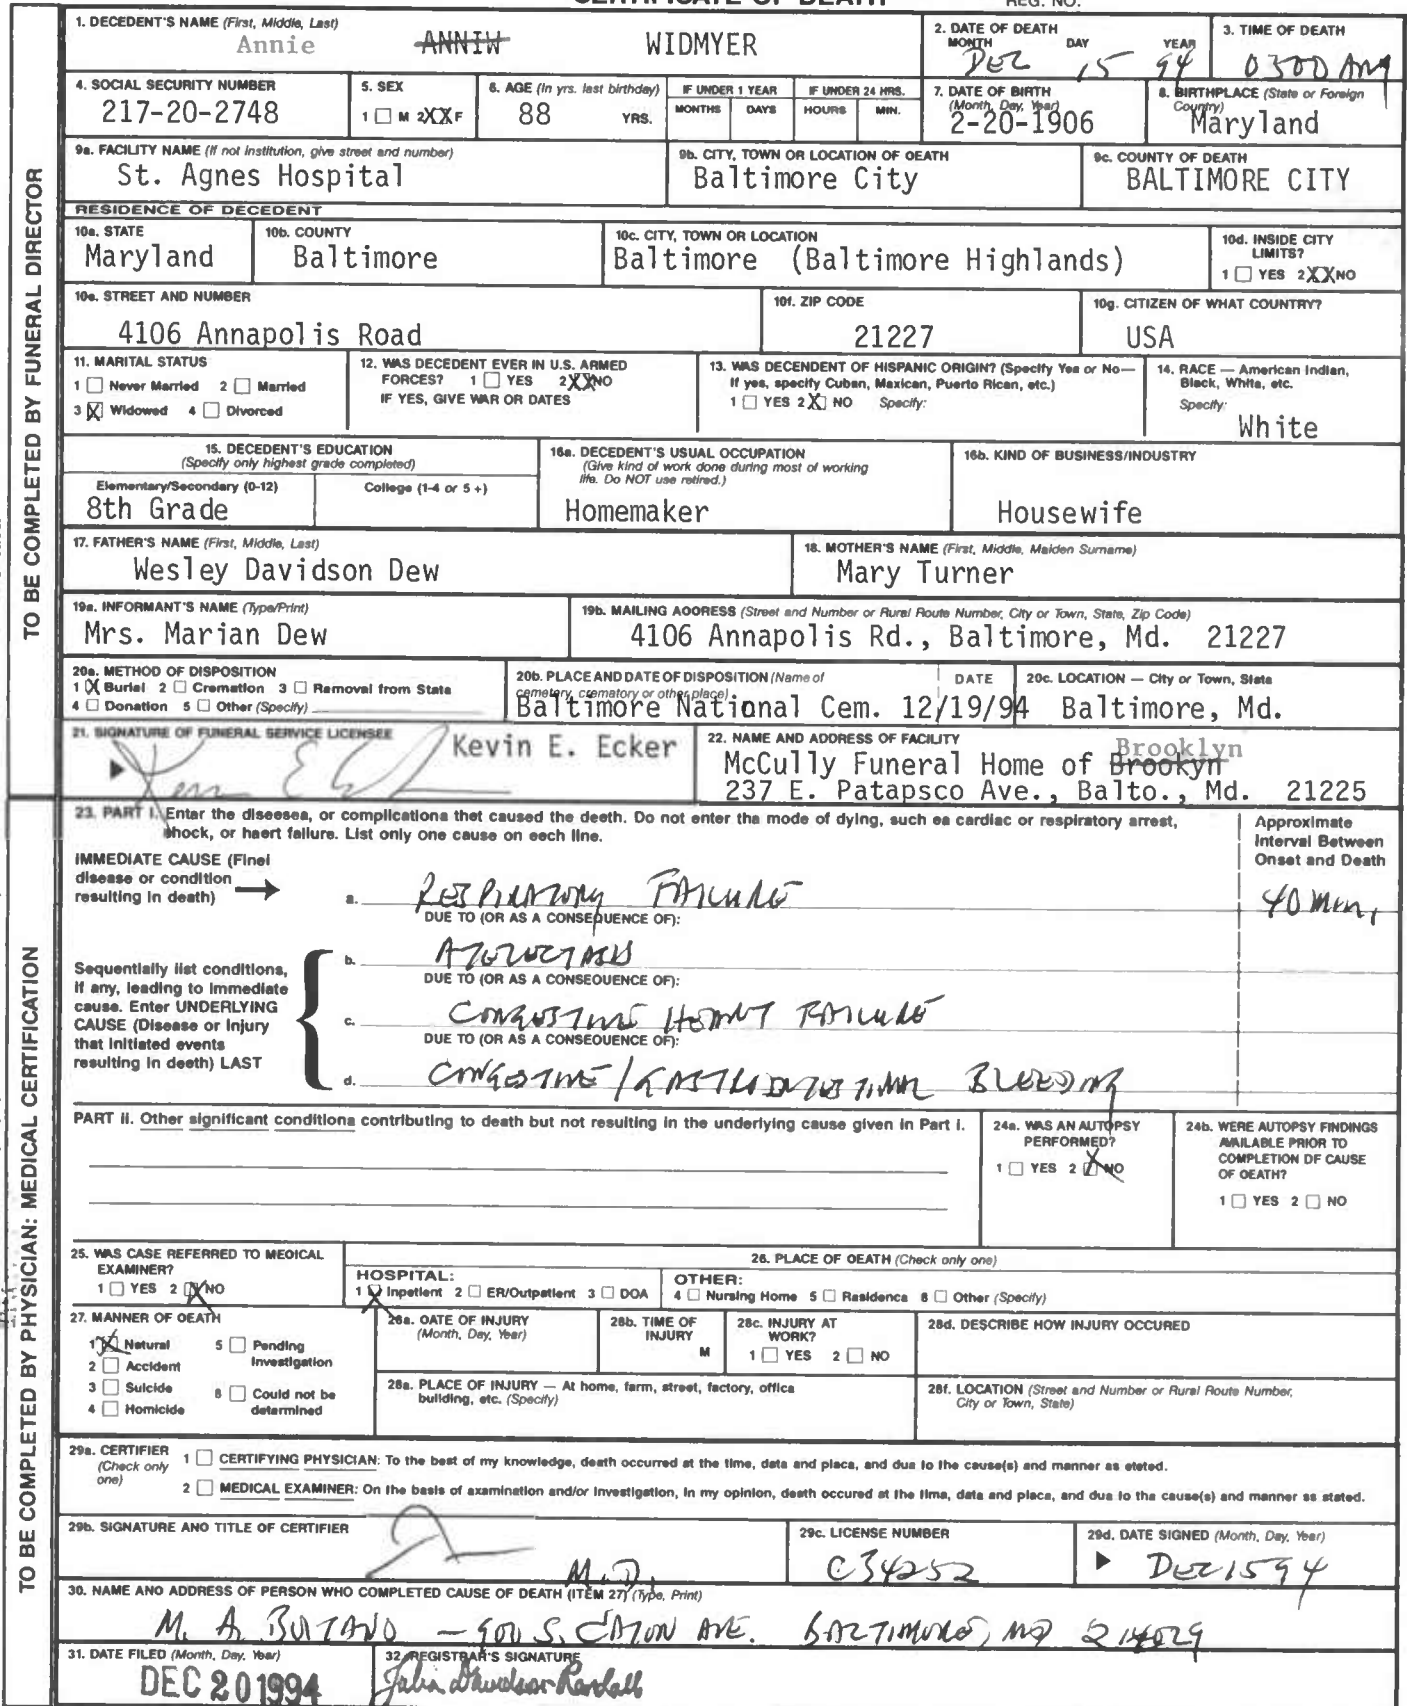 CERTIFICATE OF DEATH REG. NO.
TO BE COMPLETED BY FUNERAL DIRECTOR
1. DECEDENT'S NAME (First, Middle, Last)
Annie ANNIW WIDMYER
2. DATE OF DEATH
MONTH DAY YEAR
DEC 15 94
3. TIME OF DEATH
0300 AM
4. SOCIAL SECURITY NUMBER
217-20-2748
5. SEX
1 ☐ M 2XX F
6. AGE (In yrs. last birthday)
88 YRS.
IF UNDER 1 YEAR
MONTHS DAYS
IF UNDER 24 HRS.
HOURS MIN.
7. DATE OF BIRTH
(Month, Day, Year)
2-20-1906
8. BIRTHPLACE (State or Foreign
Country)
Maryland
9a. FACILITY NAME (If not institution, give street and number)
St. Agnes Hospital
9b. CITY, TOWN OR LOCATION OF DEATH
Baltimore City
9c. COUNTY OF DEATH
BALTIMORE CITY
RESIDENCE OF DECEDENT
10a. STATE
Maryland
10b. COUNTY
Baltimore
10c. CITY, TOWN OR LOCATION
Baltimore (Baltimore Highlands)
10d. INSIDE CITY
LIMITS?
1 ☐ YES 2XXNO
10e. STREET AND NUMBER
4106 Annapolis Road
10f. ZIP CODE
21227
10g. CITIZEN OF WHAT COUNTRY?
USA
11. MARITAL STATUS
1 ☐ Never Married 2 ☐ Married
3 ☒ Widowed 4 ☐ Divorced
12. WAS DECEDENT EVER IN U.S. ARMED
FORCES? 1 ☐ YES 2XXNO
IF YES, GIVE WAR OR DATES
13. WAS DECENDENT OF HISPANIC ORIGIN? (Specify Yes or No—
If yes, specify Cuban, Mexican, Puerto Rican, etc.)
1 ☐ YES 2 ☒ NO Specify:
14. RACE — American Indian,
Black, White, etc.
Specify:
White
15. DECEDENT'S EDUCATION
(Specify only highest grade completed)
Elementary/Secondary (0-12) College (1-4 or 5 +)
8th Grade
16a. DECEDENT'S USUAL OCCUPATION
(Give kind of work done during most of working
life. Do NOT use retired.)
Homemaker
16b. KIND OF BUSINESS/INDUSTRY
Housewife
17. FATHER'S NAME (First, Middle, Last)
Wesley Davidson Dew
18. MOTHER'S NAME (First, Middle, Maiden Surname)
Mary Turner
19a. INFORMANT'S NAME (Type/Print)
Mrs. Marian Dew
19b. MAILING ADDRESS (Street and Number or Rural Route Number, City or Town, State, Zip Code)
4106 Annapolis Rd., Baltimore, Md. 21227
20a. METHOD OF DISPOSITION
1 ☒ Burial 2 ☐ Cremation 3 ☐ Removal from State
4 ☐ Donation 5 ☐ Other (Specify)
20b. PLACE AND DATE OF DISPOSITION (Name of
cemetery, crematory or other place) DATE
Baltimore National Cem. 12/19/94
20c. LOCATION — City or Town, State
Baltimore, Md.
21. SIGNATURE OF FUNERAL SERVICE LICENSEE
Kevin E. Ecker
22. NAME AND ADDRESS OF FACILITY
Brooklyn
McCully Funeral Home of Brookyn
237 E. Patapsco Ave., Balto., Md. 21225
TO BE COMPLETED BY PHYSICIAN: MEDICAL CERTIFICATION
23. PART I. Enter the diseases, or complications that caused the death. Do not enter the mode of dying, such as cardiac or respiratory arrest,
shock, or heart failure. List only one cause on each line.
Approximate
Interval Between
Onset and Death
IMMEDIATE CAUSE (Final
disease or condition
resulting in death) →
a. RESPIRATORY FAILURE 40 Min,
DUE TO (OR AS A CONSEQUENCE OF):
b. ATELECTASIS
DUE TO (OR AS A CONSEQUENCE OF):
Sequentially list conditions,
if any, leading to immediate
cause. Enter UNDERLYING
CAUSE (Disease or injury
that initiated events
resulting in death) LAST
c. CONGESTIVE HEART FAILURE
DUE TO (OR AS A CONSEQUENCE OF):
d. CONGESTIVE / GASTROINTESTINAL BLEEDING
PART II. Other significant conditions contributing to death but not resulting in the underlying cause given in Part I.
24a. WAS AN AUTOPSY
PERFORMED?
1 ☐ YES 2 ☒ NO
24b. WERE AUTOPSY FINDINGS
AVAILABLE PRIOR TO
COMPLETION OF CAUSE
OF DEATH?
1 ☐ YES 2 ☐ NO
25. WAS CASE REFERRED TO MEDICAL
EXAMINER?
1 ☐ YES 2 ☒ NO
26. PLACE OF DEATH (Check only one)
HOSPITAL:
1 ☒ Inpatient 2 ☐ ER/Outpatient 3 ☐ DOA
OTHER:
4 ☐ Nursing Home 5 ☐ Residence 6 ☐ Other (Specify)
27. MANNER OF DEATH
1 ☒ Natural 5 ☐ Pending
Investigation
2 ☐ Accident
3 ☐ Suicide 6 ☐ Could not be
determined
4 ☐ Homicide
28a. DATE OF INJURY
(Month, Day, Year)
28b. TIME OF
INJURY
M
28c. INJURY AT
WORK?
1 ☐ YES 2 ☐ NO
28d. DESCRIBE HOW INJURY OCCURED
28e. PLACE OF INJURY — At home, farm, street, factory, office
building, etc. (Specify)
28f. LOCATION (Street and Number or Rural Route Number,
City or Town, State)
29a. CERTIFIER
(Check only
one)
1 ☐ CERTIFYING PHYSICIAN: To the best of my knowledge, death occurred at the time, date and place, and due to the cause(s) and manner as stated.
2 ☐ MEDICAL EXAMINER: On the basis of examination and/or investigation, in my opinion, death occured at the time, date and place, and due to the cause(s) and manner as stated.
29b. SIGNATURE AND TITLE OF CERTIFIER
M.D.
29c. LICENSE NUMBER
C34252
29d. DATE SIGNED (Month, Day, Year)
DEC 15 94
30. NAME AND ADDRESS OF PERSON WHO COMPLETED CAUSE OF DEATH (ITEM 27) (Type, Print)
M. A. — 900 S. CATON AVE. BALTIMORE, MD
31. DATE FILED (Month, Day, Year)
DEC 20 1994
32. REGISTRAR'S SIGNATURE
Julia Davidson-Randall